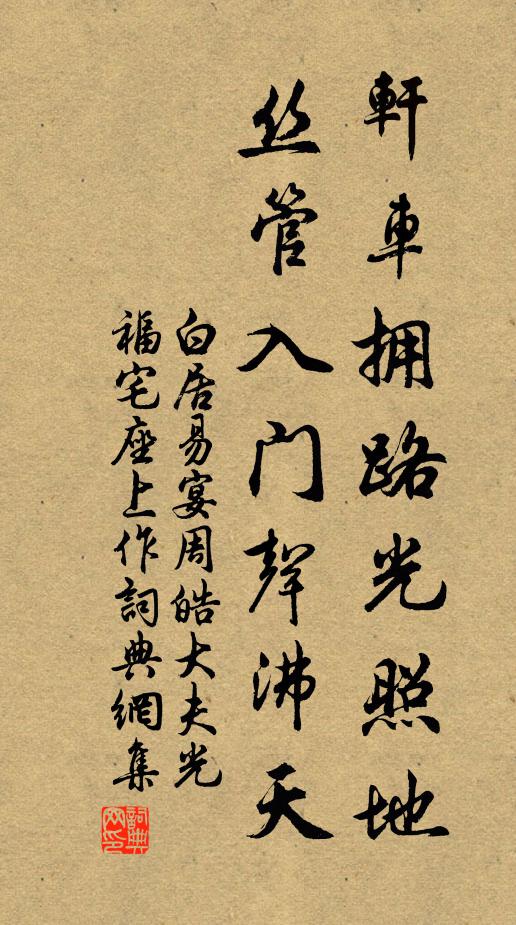 軒車拥路光照地
丝管入门聲沸天
白居易宴周皓大夫光
福宅座上作詞典網集
詞典网印